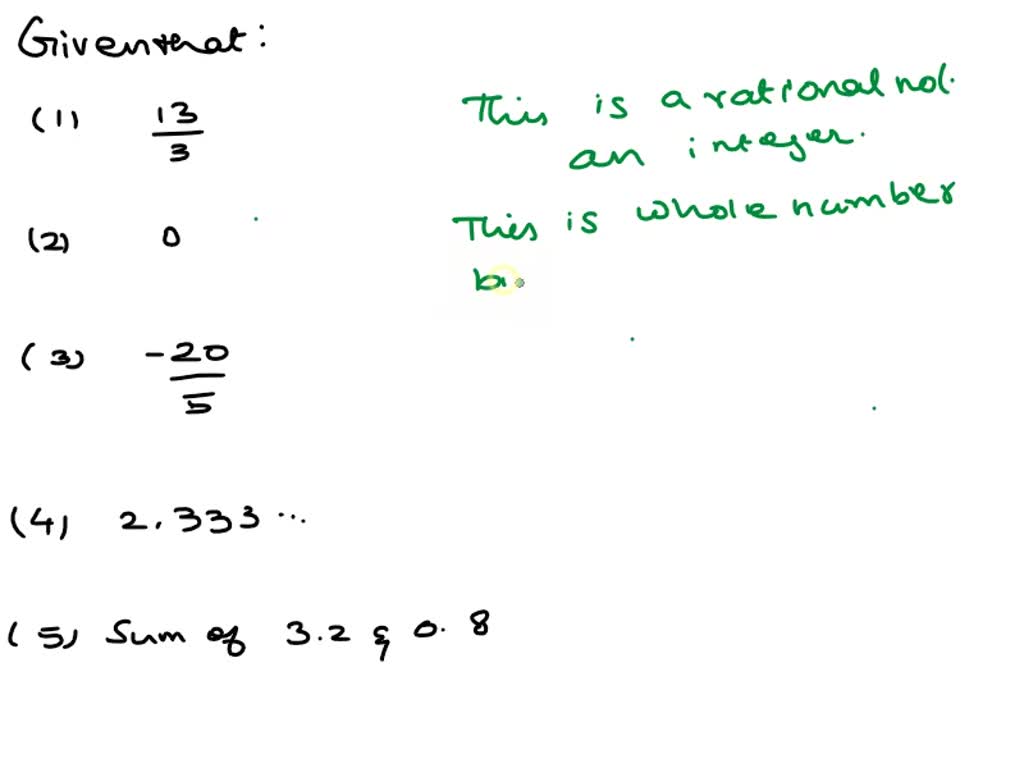 Given that:
(1) 13/3
This is a rational not
an integer.
(2) 0
This is whole number
(3) -20/5
(4) 2.333...
(5) Sum of 3.2 & 0.8